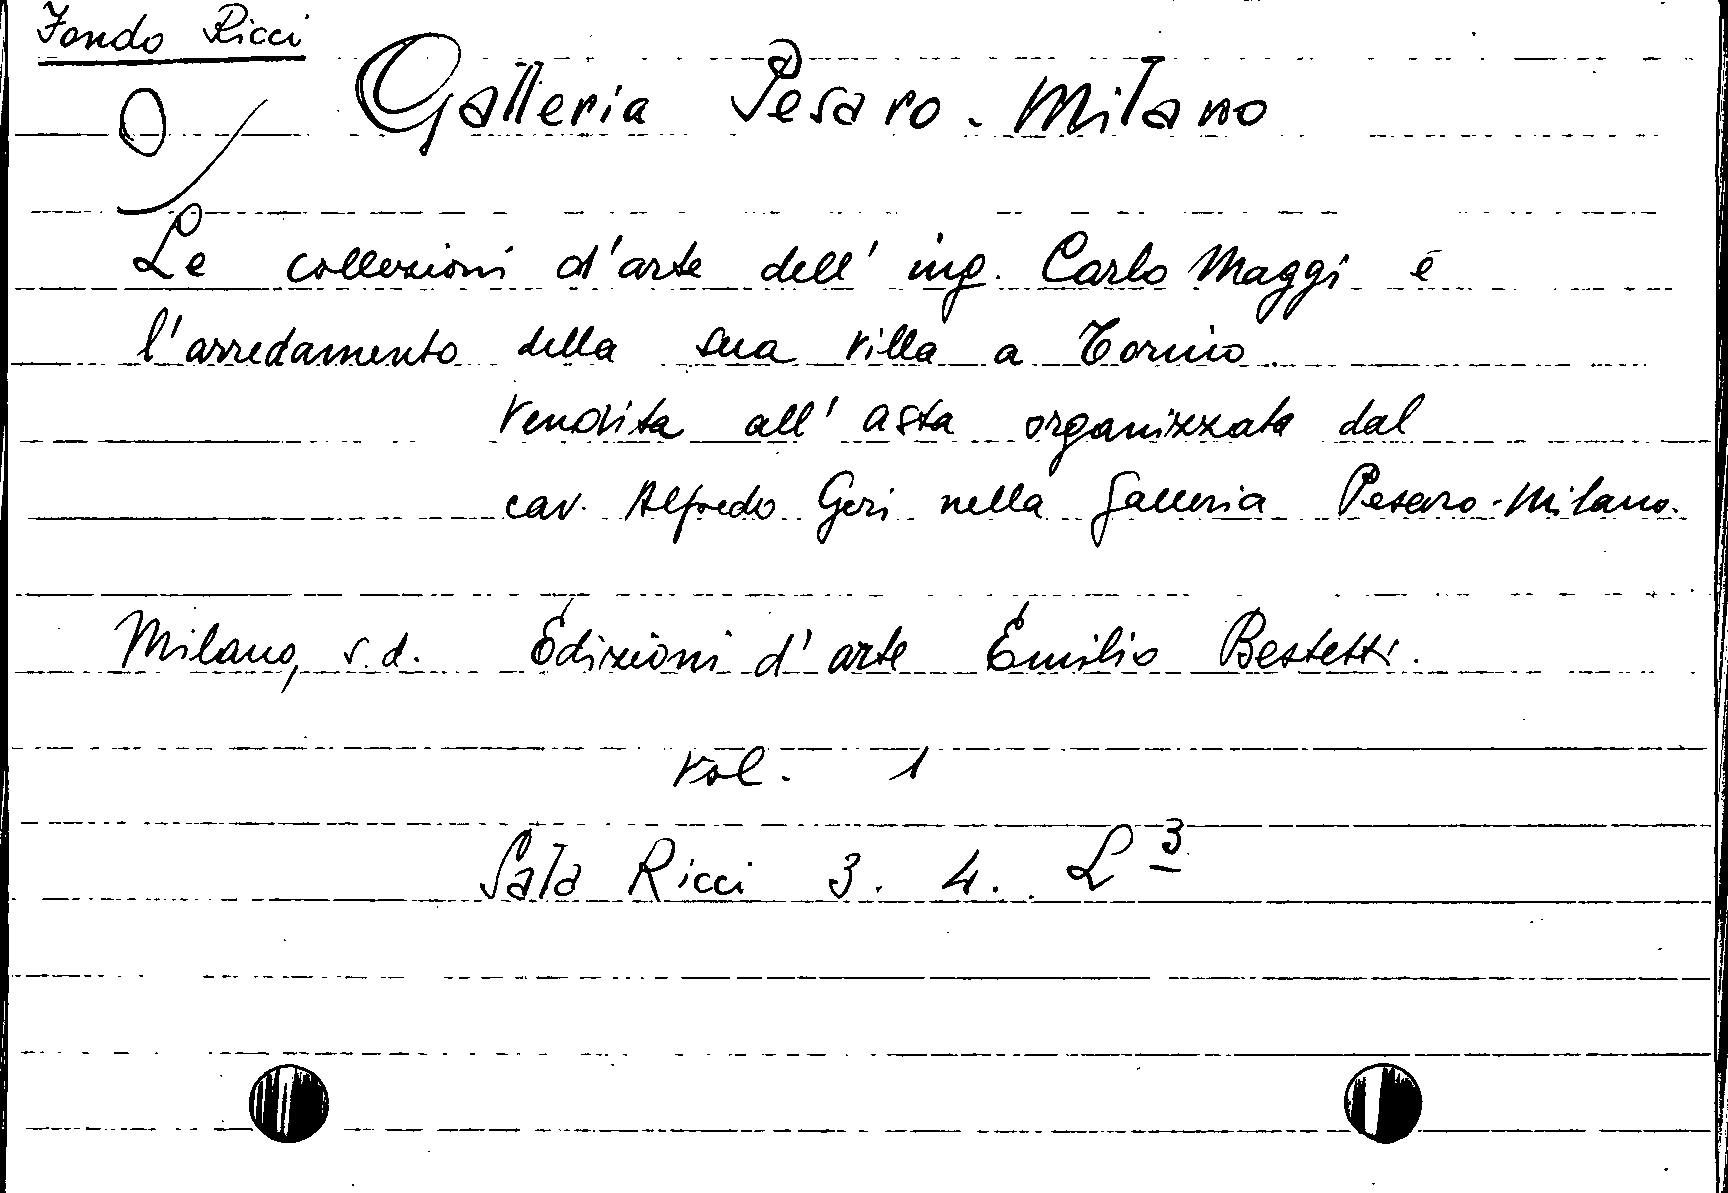 Fondo Ricci
Galleria Pesaro - Milano
Le collezioni d'arte dell' ing. Carlo Maggi e
l'arredamento della sua villa a Torino.
Vendita all' asta organizzata dal
cav. Alfredo Geri nella Galleria Pesaro - Milano.
Milano, s.d. Edizioni d'arte Emilio Bestetti.
Vol. 1
Sala Ricci 3. 4. L 3